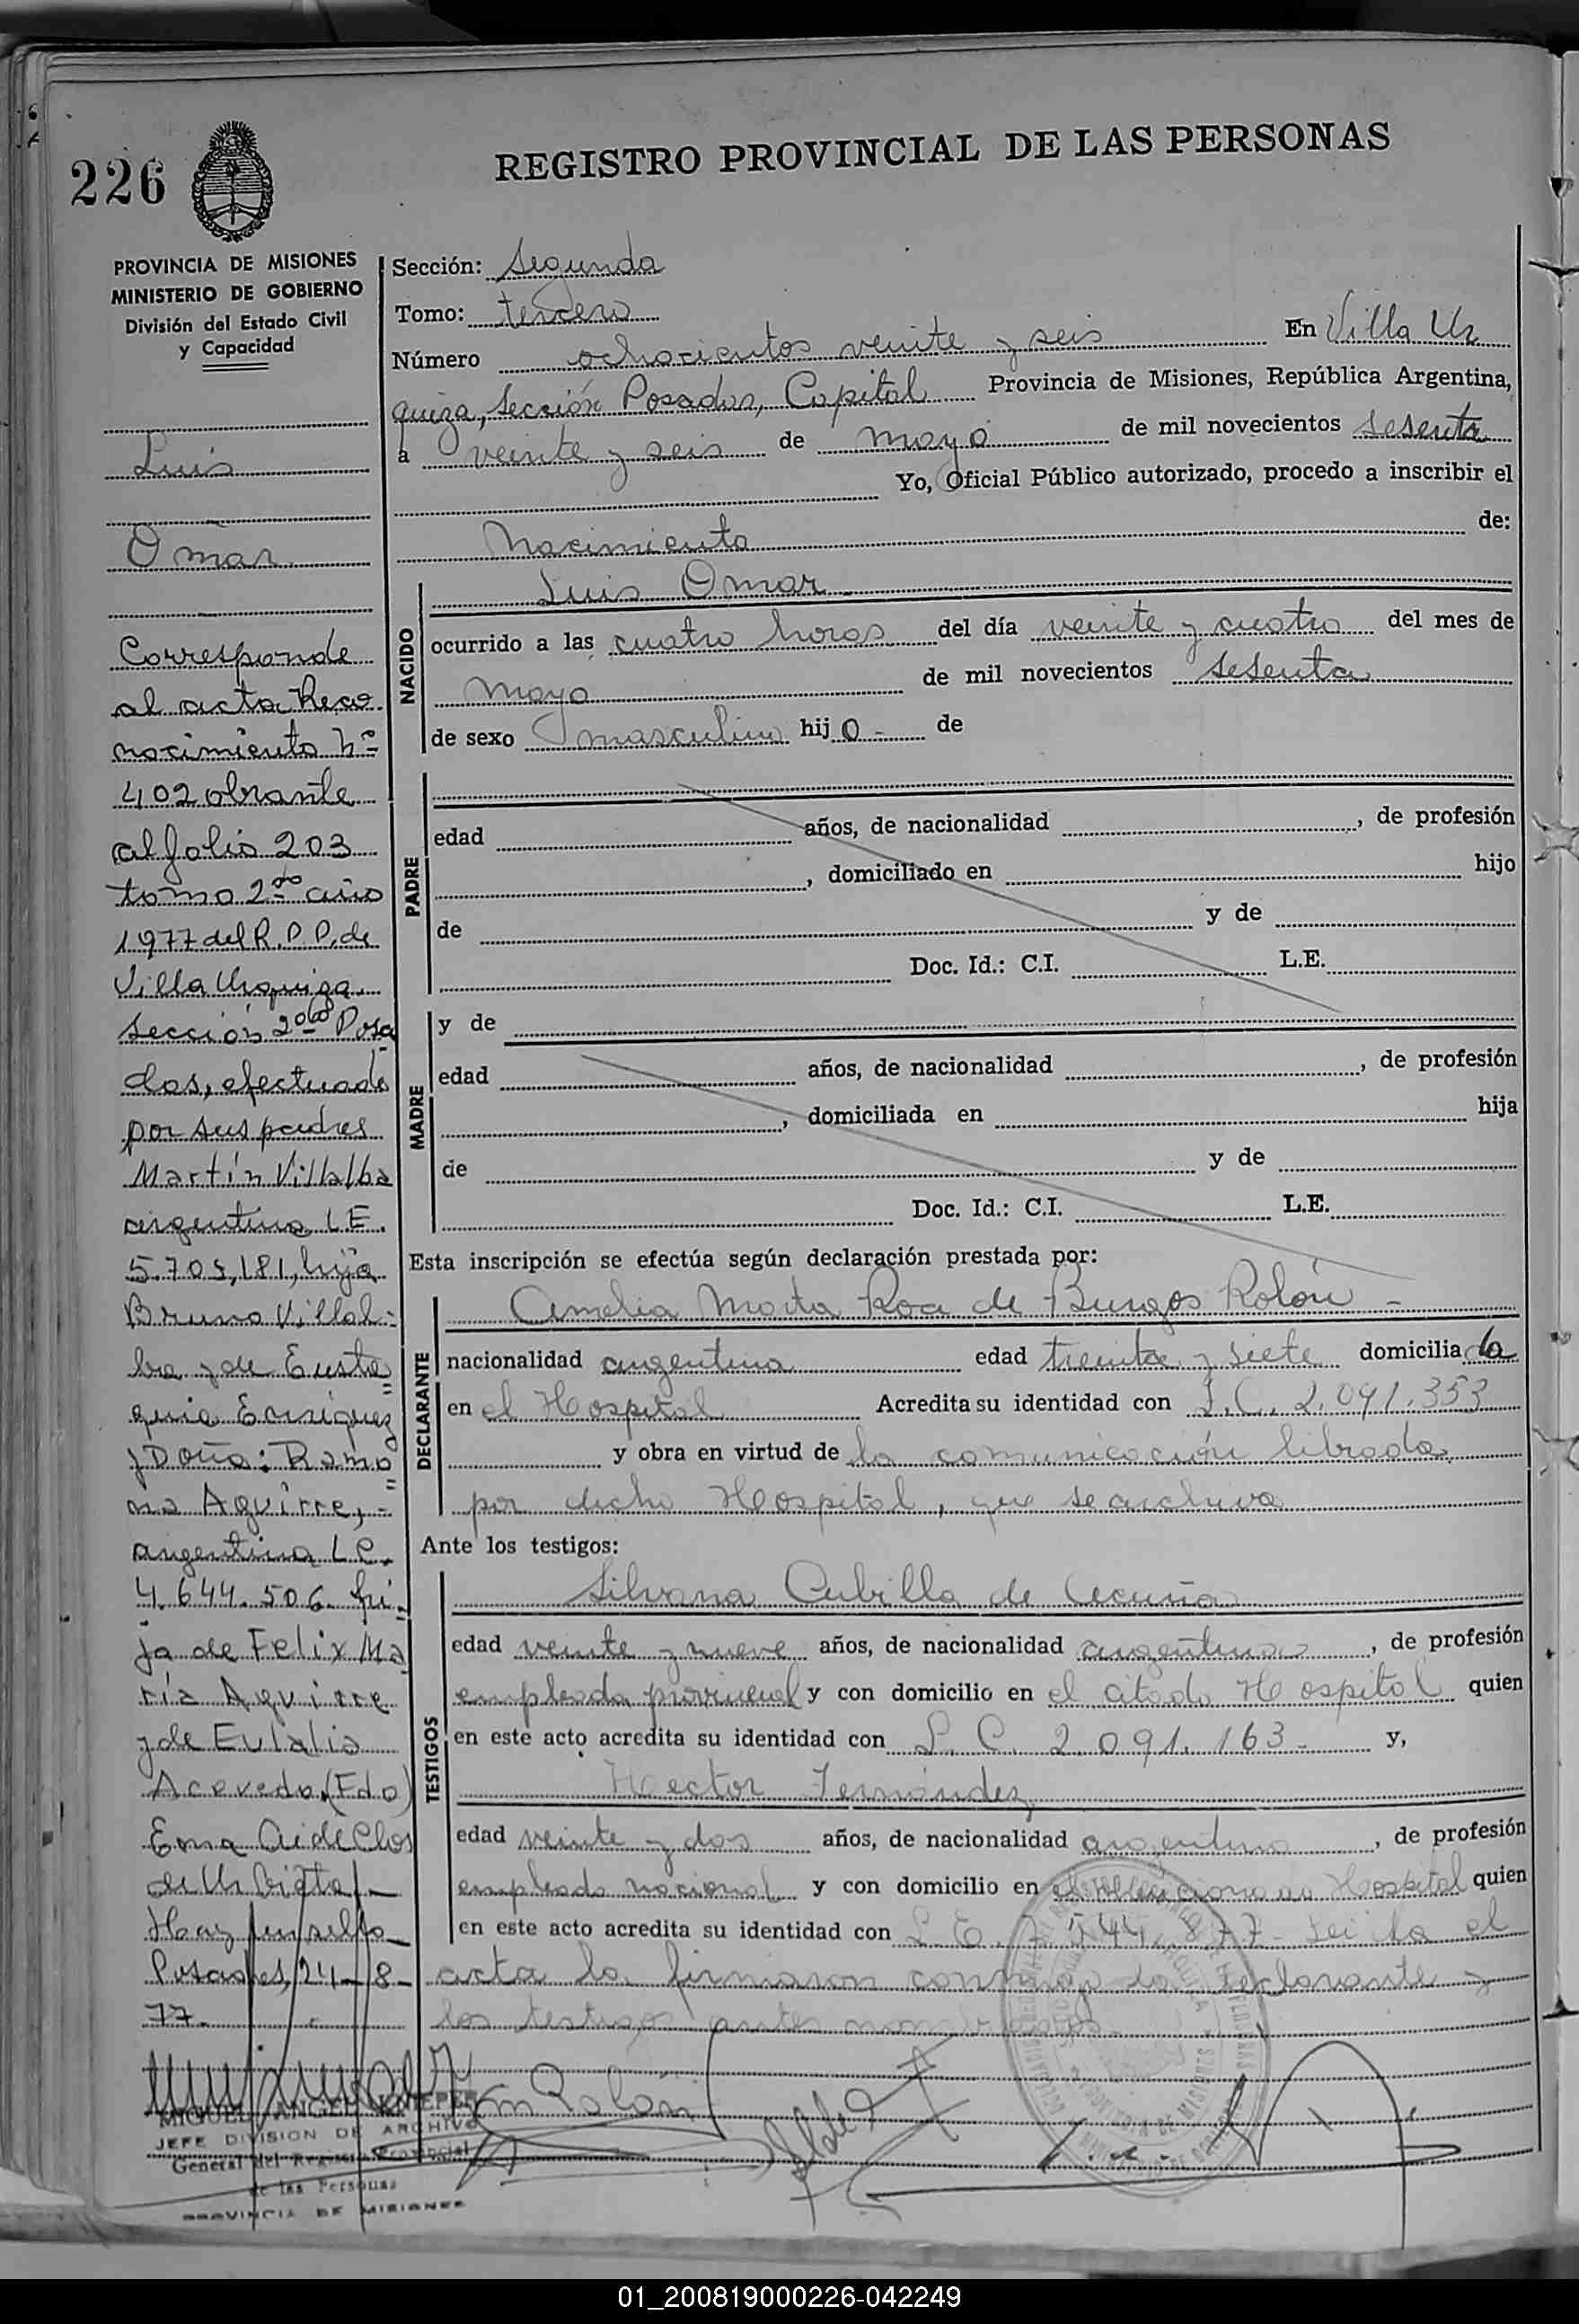 226
REGISTRO PROVINCIAL DE LAS PERSONAS
PROVINCIA DE MISIONES
MINISTERIO DE GOBIERNO
División del Estado Civil
y Capacidad
Luis
Omar
Corresponde
al acta Reco
nocimiento Nº
402 obrante
al folio 203
tomo 2do año
1977 del R.P.P. de
Villa Urquiza
Sección 2da Posa
das, efectuado
por sus padres
Martín Villalba
argentino L.E.
5.703.181, hijo
Bruno Villal-
ba y de Eusta
quia Enriquez
y Doña: Ramo
na Aguirre,
argentina L.C.
4.644.506 hi-
ja de Felix Ma
ría Aguirre
y de Eulalia
Acevedo. (Fdo)
Ema
de
Hay un sello
Posadas, 24-8-
77.
MIGUEL ANGEL
JEFE DIVISION DE ARCHIVO
General del Registro Provincial
de las Personas
PROVINCIA DE MISIONES
Sección: Segunda
Tomo: tercero
Número ochocientos veinte y seis En Villa Ur
quiza, Sección Posadas, Capital Provincia de Misiones, República Argentina,
a veinte y seis de mayo de mil novecientos sesenta
Yo, Oficial Público autorizado, procedo a inscribir el
Nacimiento de:
NACIDO
Luis Omar
ocurrido a las cuatro horas del día veinte y cuatro del mes de
mayo de mil novecientos sesenta
de sexo masculino hijo - de
PADRE
edad años, de nacionalidad , de profesión
, domiciliado en hijo
de y de
Doc. Id.: C.I. L.E.
MADRE
y de
edad años, de nacionalidad , de profesión
, domiciliada en hija
de y de
Doc. Id.: C.I. L.E.
Esta inscripción se efectúa según declaración prestada por:
DECLARANTE
Amelia Marta Roa de Burgos Rolón -
nacionalidad argentina edad treinta y siete domiciliada
en el Hospital Acredita su identidad con L.C. 2.091.353
y obra en virtud de la comunicación librada
por dicho Hospital, que se archiva
Ante los testigos:
TESTIGOS
Silvana Cubilla de Acuña
edad veinte y nueve años, de nacionalidad argentina , de profesión
empleada provincial y con domicilio en el citado Hospital quien
en este acto acredita su identidad con L.C. 2.091.163 - y,
Hector Fernández
edad veinte y dos años, de nacionalidad argentino , de profesión
empleado nacional y con domicilio en el mencionado Hospital quien
en este acto acredita su identidad con L.E. 7.544.877 - Leida el
acta la firmaron conmigo la declarante y
los testigos antes nombrados.
Rolón
01_200819000226-042249